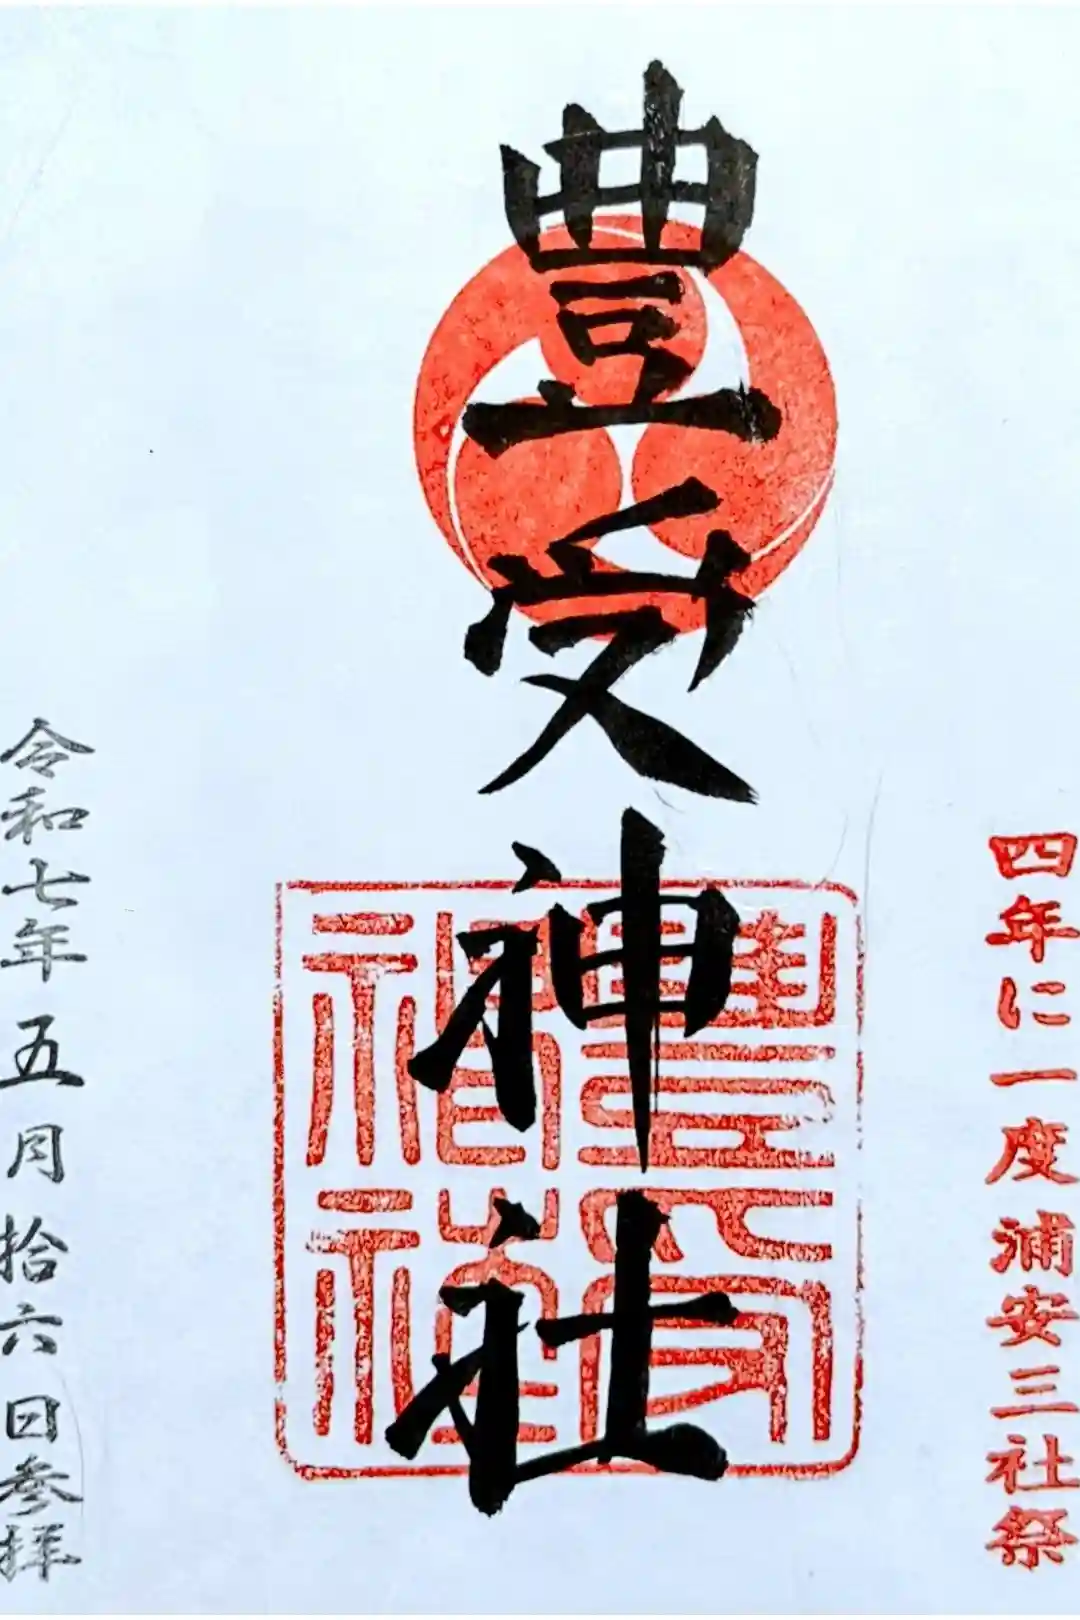 四年に一度浦安三社祭
豊受神社
豊受神社
令和七年五月拾六日参拝